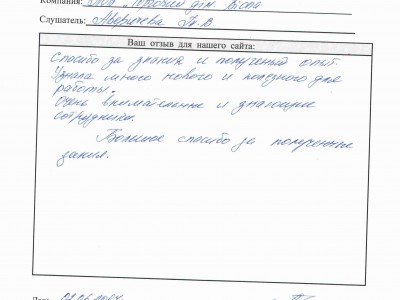 Компания: Торговий дім Віспа
Слушатель: П.В.
Ваш отзыв для нашего сайта:
Спасибо за знания и полученый опыт.
Узнала много нового и полезного для
работы.
Очень внимательные и знающие
сотрудники.
Большое спасибо за полученные
зания.